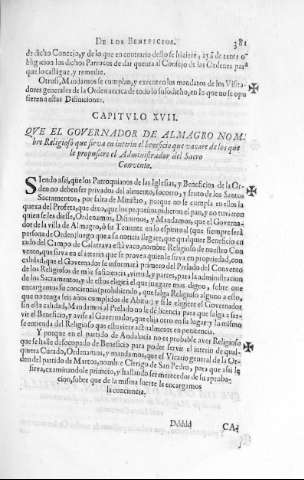 DE LOS BENEFICIOS. 381
de dicho Concejo, y de lo que en contrario desto se hiziere, aya de tener o
bligacion los dichos Parrocos de dar quenta al Consejo de las Ordenes para
que lo castigue, y remedie.
Otrosi, Mandamos se cumplan, y executen los mandatos de los Visita-
dores generales de la Orden acerca de todo lo susodicho, en lo que no se opu
sieren a estas Difiniciones.
CAPITVLO XVII.
QVE EL GOVERNADOR DE ALMAGRO NOM-
bre Religioso que sirva en interin el beneficio que vacare de los que
le propusiere el Administrador del Sacro
Convento.
Siendo assi, que los Parroquianos de las Iglesias, y Beneficios de la Or-
den no deben ser privados del alimento, socorro, y fruto de los Santos
Sacramentos, por falta de Ministro, porque no se cumpla en ellos la
quexa del Profeta, que dixo, que los pequeñuelos pidieron el pan, y no tuvieron
quien se les diesse, Ordenamos, Difinimos, y Mandamos, que el Governa-
dor de la villa de Almagro, ò su Teniente en lo espiritual (que siempre serà
persona de Orden) luego que à su noticia llegare, que qualquier Beneficio en
todo del Campo de Calatrava està vaco, nombre Religioso de nuestro Con
vento, que sirva en el interin que se provea quien le sirva en propriedad, con
calidad, que el Governador se informarà primero del Prelado del Convento
de los Religiosos de mas suficiencia, virtud, y partes, para la administracion
de los Sacramentos, y de ellos elegirà el que juzgare mas digno, sobre que
encargamos su conciencia (prohibiendo, que salga Religioso alguno a esto,
que no tenga seis años cumplidos de Abito) y si le eligiere el Governador
sin esta calidad, Mandamos al Prelado no le dè licencia para que salga a ser-
vir el Beneficio, y avise al Governador, que elija otro en su lugar: y la mismo
se entienda del Religioso que estuviere actualmente en penitencia.
Y porque en el partido de Andaluzia no es probable aver Religioso
que se halle desocupado de Beneficio para poder servir el interin de qual-
quiera Curado, Ordenamos, y mandamos, que el Vicario general de la Or-
den del partido de Martos, nombre Clerigo de San Pedro, para que assi le
sirva, examinandole primero, y hallando ser merecedor de su aproba-
cion, sobre que de la misma suerte le encargamos
la conciencia.
Ddddd CA-